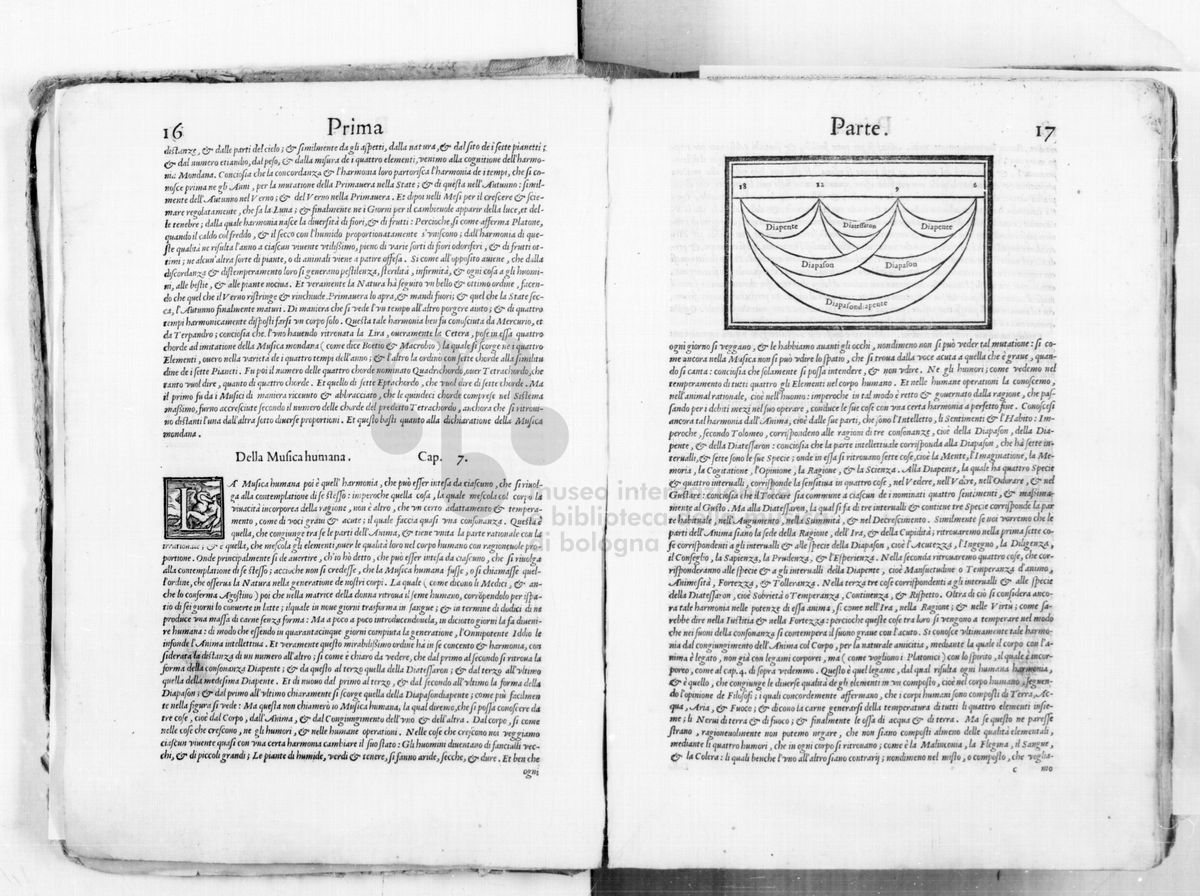 16 Prima
distanze, & dalle parti del cielo; & similmente da gli aspetti, dalla natura, & dal sito de i sette pianetti;
& dal numero etiandio, dal peso, & dalla misura de i quattro elementi, venimo alla cognitione dell'harmo-
nia Mondana. Conciosia che la concordanza & l'harmonia loro partorisca l'harmonia de i tempi, che si co-
nosce prima ne gli Anni, per la mutatione della Primauera nella State; & di questa nell'Autunno: simil-
mente dell'Autunno nel Verno; & del Verno nella Primauera. Et dipoi nelli Mesi per il crescere & sce-
mare regolatamente, che fa la Luna; & finalmente ne i Giorni per il cambieuole apparir della luce, et del-
le tenebre; dalla quale harmonia nasce la diuersità di fiori, & di frutti: Percioche si come afferma Platone,
quando il caldo col freddo, & il secco con l'humido proportionatamente s'vniscono; dall'harmonia di que-
ste qualità ne risulta l'anno a ciascun viuente vtilissimo, pieno di varie sorti di fiori odoriferi, & di frutti ot-
timi; ne alcun'altra sorte di piante, o di animali viene a patire offesa. Si come all'opposito auiene, che dalla
discordanza & distemperamento loro si generano pestilenza, sterilità, infirmità, & ogni cosa a gli huomi-
ni, alle bestie, & alle piante nociua. Et veramente la Natura hà seguito vn bello & ottimo ordine, facen-
do che quel che il Verno ristringe & rinchiude, Primauera lo apra, & mandi fuori; & quel che la State sec-
ca, l'Autunno finalmente maturi. Di maniera che si vede l'vn tempo all'altro porgere aiuto; & di quattro
tempi harmonicamente disposti farsi vn corpo solo. Questa tale harmonia ben fu conosciuta da Mercurio, et
da Terpandro; conciosia che l'vn hauendo ritrouata la Lira, oueramente la Cetera, pose in essa quattro
chorde ad imitatione della Musica mondana (come dice Boetio & Macrobio) la quale si scorge ne i quattro
Elementi, ouero nella varietà de i quattro tempi dell'anno; & l'altro la ordinò con sette chorde alla similitu
dine de i sette Pianeti. Fu poi il numero delle quattro chorde nominato Quadrichordo, ouer Tetrachordo, che
tanto vuol dire, quanto di quattro chorde. Et quello di sette Eptachordo, che vuol dire di sette chorde. Ma
il primo fu da i Musici di maniera riceuuto & abbracciato, che le quindeci chorde comprese nel Sistema
massimo, furno accresciute secondo il numero delle chorde del predetto Tetrachordo, anchora che si ritroui-
no distanti l'una dall'altra sotto diuerse proportioni. Et questo basti quanto alla dichiaratione della Musica
mondana.
Della Musica humana. Cap. 7.
LA Musica humana poi è quell'harmonia, che può esser intesa da ciascuno, che si riuol-
ga alla contemplatione di se stesso: imperoche quella cosa, la quale mescola col corpo la
viuacità incorporea della ragione, non è altro, che vn certo adattamento & tempera-
mento, come di voci graui & acute; il quale faccia quasi vna consonanza. Questa è
quella, che congiunge tra se le parti dell'Anima, & tiene vnita la parte rationale con la
irrationale; & è quella, che mescola gli elementi, ouer le qualità loro nel corpo humano con ragioneuole pro-
portione. Onde principalmente si de auertire, ch'io hò detto, che può esser intesa da ciascuno, che si riuolga
alla contemplatione di se stesso; accioche non si credesse, che la Musica humana fusse, o si chiamasse quel-
l'ordine, che osserua la Natura nella generatione de nostri corpi. La quale (come dicono li Medici, & an-
che lo conferma Agostino) poi che nella matrice della donna ritroua il seme humano, corrõpendolo per ispa-
tio di sei giorni lo conuerte in latte; il quale in noue giorni trasforma in sangue; & in termine di dodici di ne
produce vna massa di carne senza forma: Ma a poco a poco introducendouela, in diciotto giorni la fa diueni-
re humana: di modo che essendo in quarantacinque giorni compiuta la generatione, l'Onnipotente Iddio le
infonde l'Anima intellettiua. Et veramente questo mirabilissimo ordine hà in se concento & harmonia, con
siderata la distanza di un numero all'altro; si come è chiaro da vedere, che dal primo al secondo si ritroua la
forma della consonanza Diapente; & da questo al terzo quella della Diatessaron; & dal terzo all'vltimo
quella della medesima Diapente. Et di nuouo dal primo al terzo, & dal secondo all'vltimo la forma della
Diapason; & dal primo all'vltimo chiaramente si scorge quella della Diapasondiapente; come più facilmen
te nella figura si vede: Ma questa non chiamerò io Musica humana, la qual diremo, che si possa conoscere da
tre cose, cioè dal Corpo, dall'Anima, & dal Congiungimento dell'vno & dell'altra. Dal corpo, si come
nelle cose che crescono, ne gli humori, & nelle humane operationi. Nelle cose che crescono noi veggiamo
ciascun viuente quasi con vna certa harmonia cambiare il suo stato: Gli huomini diuentano di fanciulli vec-
chi, & di piccoli grandi; Le piante di humide, verdi & tenere, si fanno aride, secche, & dure. Et ben che
ogni
Parte. 17
18 12 9 6
Diapente Diatessaron Diapente
Diapason Diapason
Diapasondiapente
ogni giorno si veggano, & le habbiamo auanti gli occhi, nondimeno non si può veder tal mutatione: si co-
me ancora nella Musica non si può vdire lo spatio, che si troua dalla voce acuta a quella che è graue, quan-
do si canta: conciosia che solamente si possa intendere, & non vdire. Ne gli humori; come vedemo nel
temperamento di tutti quattro gli Elementi nel corpo humano. Et nelle humane operationi la conoscemo,
nell'animal rationale, cioè nell'huomo: imperoche in tal modo è retto & gouernato dalla ragione, che pas-
sando per i debiti mezi nel suo operare, conduce le sue cose con vna certa harmonia a perfetto fine. Conoscesi
ancora tal harmonia dall'Anima, cioè dalle sue parti, che sono l'Intelletto, li Sentimenti & l'Habito: Im-
peroche, secondo Tolomeo, corrispondeno alle ragioni di tre consonanze, cioè della Diapason, della Dia-
pente, & della Diatessaron: conciosia che la parte intellettuale corrisponda alla Diapason, che hà sette in-
terualli, & sette sono le sue Specie; onde in essa si ritrouano sette cose, cioè la Mente, l'Imaginatione, la Me-
moria, la Cogitatione, l'Opinione, la Ragione, & la Scienza. Alla Diapente, la quale ha quattro Specie
& quattro interualli, corrisponde la sensitiua in quattro cose, nel Vedere, nell'Vdire, nell'Odorare, & nel
Gustare: conciosia che il Toccare sia commune a ciascun de i nominati quattro sentimenti, & maßima-
mente al Gusto. Ma alla Diatessaron, la qual si fa di tre interualli & contiene tre Specie corrisponde la par
te habituale, nell'Augumento, nella Summità, & nel Decrescimento. Similmente se noi vorremo che le
parti dell'Anima siano la sede della Ragione, dell'Ira, & della Cupidità; ritrouaremo nella prima sette co-
se corrispondenti a gli interualli & alle specie della Diapason, cioè l'Acutezza, l'Ingegno, la Diligenza,
il Conseglio, la Sapienza, la Prudenza, & l'Esperienza. Nella seconda ritrouaremo quattro cose, che cor-
risponderanno alle specie & a gli interualli della Diapente, cioè Mansuetudine o Temperanza d'animo,
Animosità, Fortezza, & Tolleranza. Nella terza tre cose corrispondenti a gli interualli & alle specie
della Diatessaron, cioè Sobrietà o Temperanza, Continenza, & Rispetto. Oltra di ciò si considera anco-
ra tale harmonia nelle potenze di essa anima, si come nell'Ira, nella Ragione; & nelle Virtu; come sa-
rebbe dire nella Iustitia & nella Fortezza: percioche queste cose tra loro si vengono a temperare nel modo
che nei suoni della consonanza si contempera il suono graue con l'acuto. Si conosce vltimamente tale harmo-
nia dal congiungimento dell'Anima col Corpo, per la naturale amicitia, mediante la quale il corpo con l'a-
nima è legato, non già con legami corporei, ma (come vogliono i Platonici) con lo spirito, il quale è incor-
poreo, come al cap. 4. di sopra vedemmo. Questo è quel legame, dal qual risulta ogni humana harmonia,
& è quello, che congiunge le diuerse qualità de gli elementi in vn composto, cioè nel corpo humano, seguen-
do l'opinione de Filosofi; i quali concordemente affermano, che i corpi humani sono composti di Terra, Ac-
qua, Aria, & Fuoco; & dicono la carne generarsi della temperatura di tutti li quattro elementi insie-
me; li Nerui di terra & di fuoco; & finalmente le ossa di acqua & di terra. Ma se questo ne paresse
strano, ragioneuolmente non potemo negare, che non siano composti almeno delle qualità elementali,
mediante li quattro humori, che in ogni corpo si ritrouano; come è la Malinconia, la Flegma, il Sangue,
& la Colera: li quali benche l'vno all'altro siano contrarij; nondimeno nel misto, o composto, che voglia-
c mo
museo internazionale
biblioteca della musica
di bologna